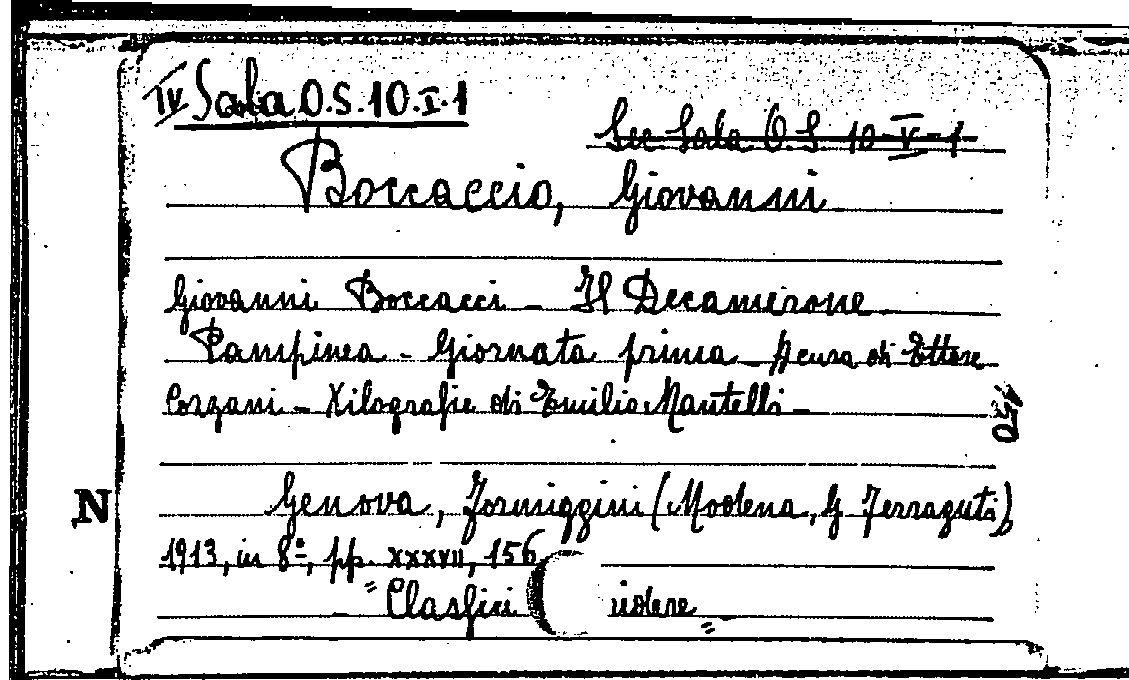 IV Sala O.S. 10. I. 1
Sec Sala O.S 10-V-1
Boccaccio, Giovanni
Giovanni Boccacci - Il Decamerone
Pampinea - Giornata prima - A cura di Ettore
Cozzani - Xilografie di Emilio Mantelli -
150
N
Genova, Formiggini (Modena, G Ferraguti)
1913, in 8º, pp. XXXVII, 156
"Classici ridere"